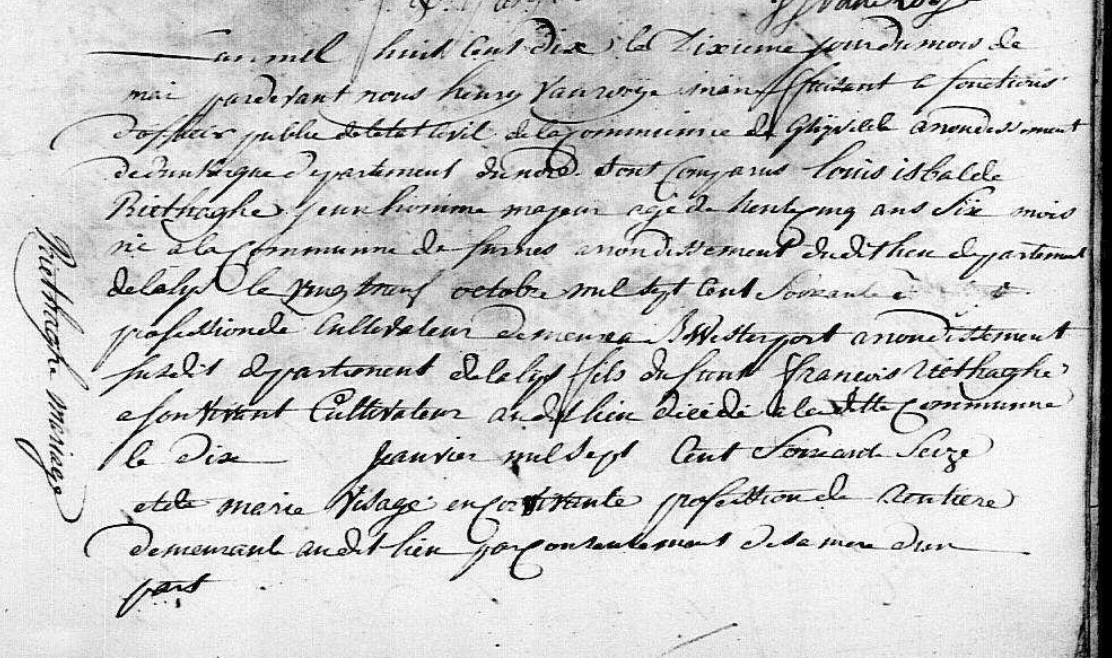 Lan mil huit Cent dix le dixieme jour du mois de
mai pardevant nous henry Vanrooye maire faisant le fonctions
d'officier public de letat Civil de la Commune de Ghyvelde arondissement
de dunkerque departement du nord Sont Comparus Louis
Riethaghe jeun homme majeur agé de trente Cinq ans Six mois
né a la Communne de furnes arondissement du dit lieu departement
de la lys le vingt neuf octobre mil Sept Cent Soixante
profession de Cultivateur demeurea Westerport arondissement
susdit departement de la lys fils du feun francois riethaghe
a son vivant Cultivateur au dit lieu décédé a la ditte Communne
le dix Janvier mil sept Cent Soixante Seize
et de marie Visage encor vivante profession de rentiere
demeurante au dit lieu par consentement de sa mere d'un
part
Riethaghe mariage